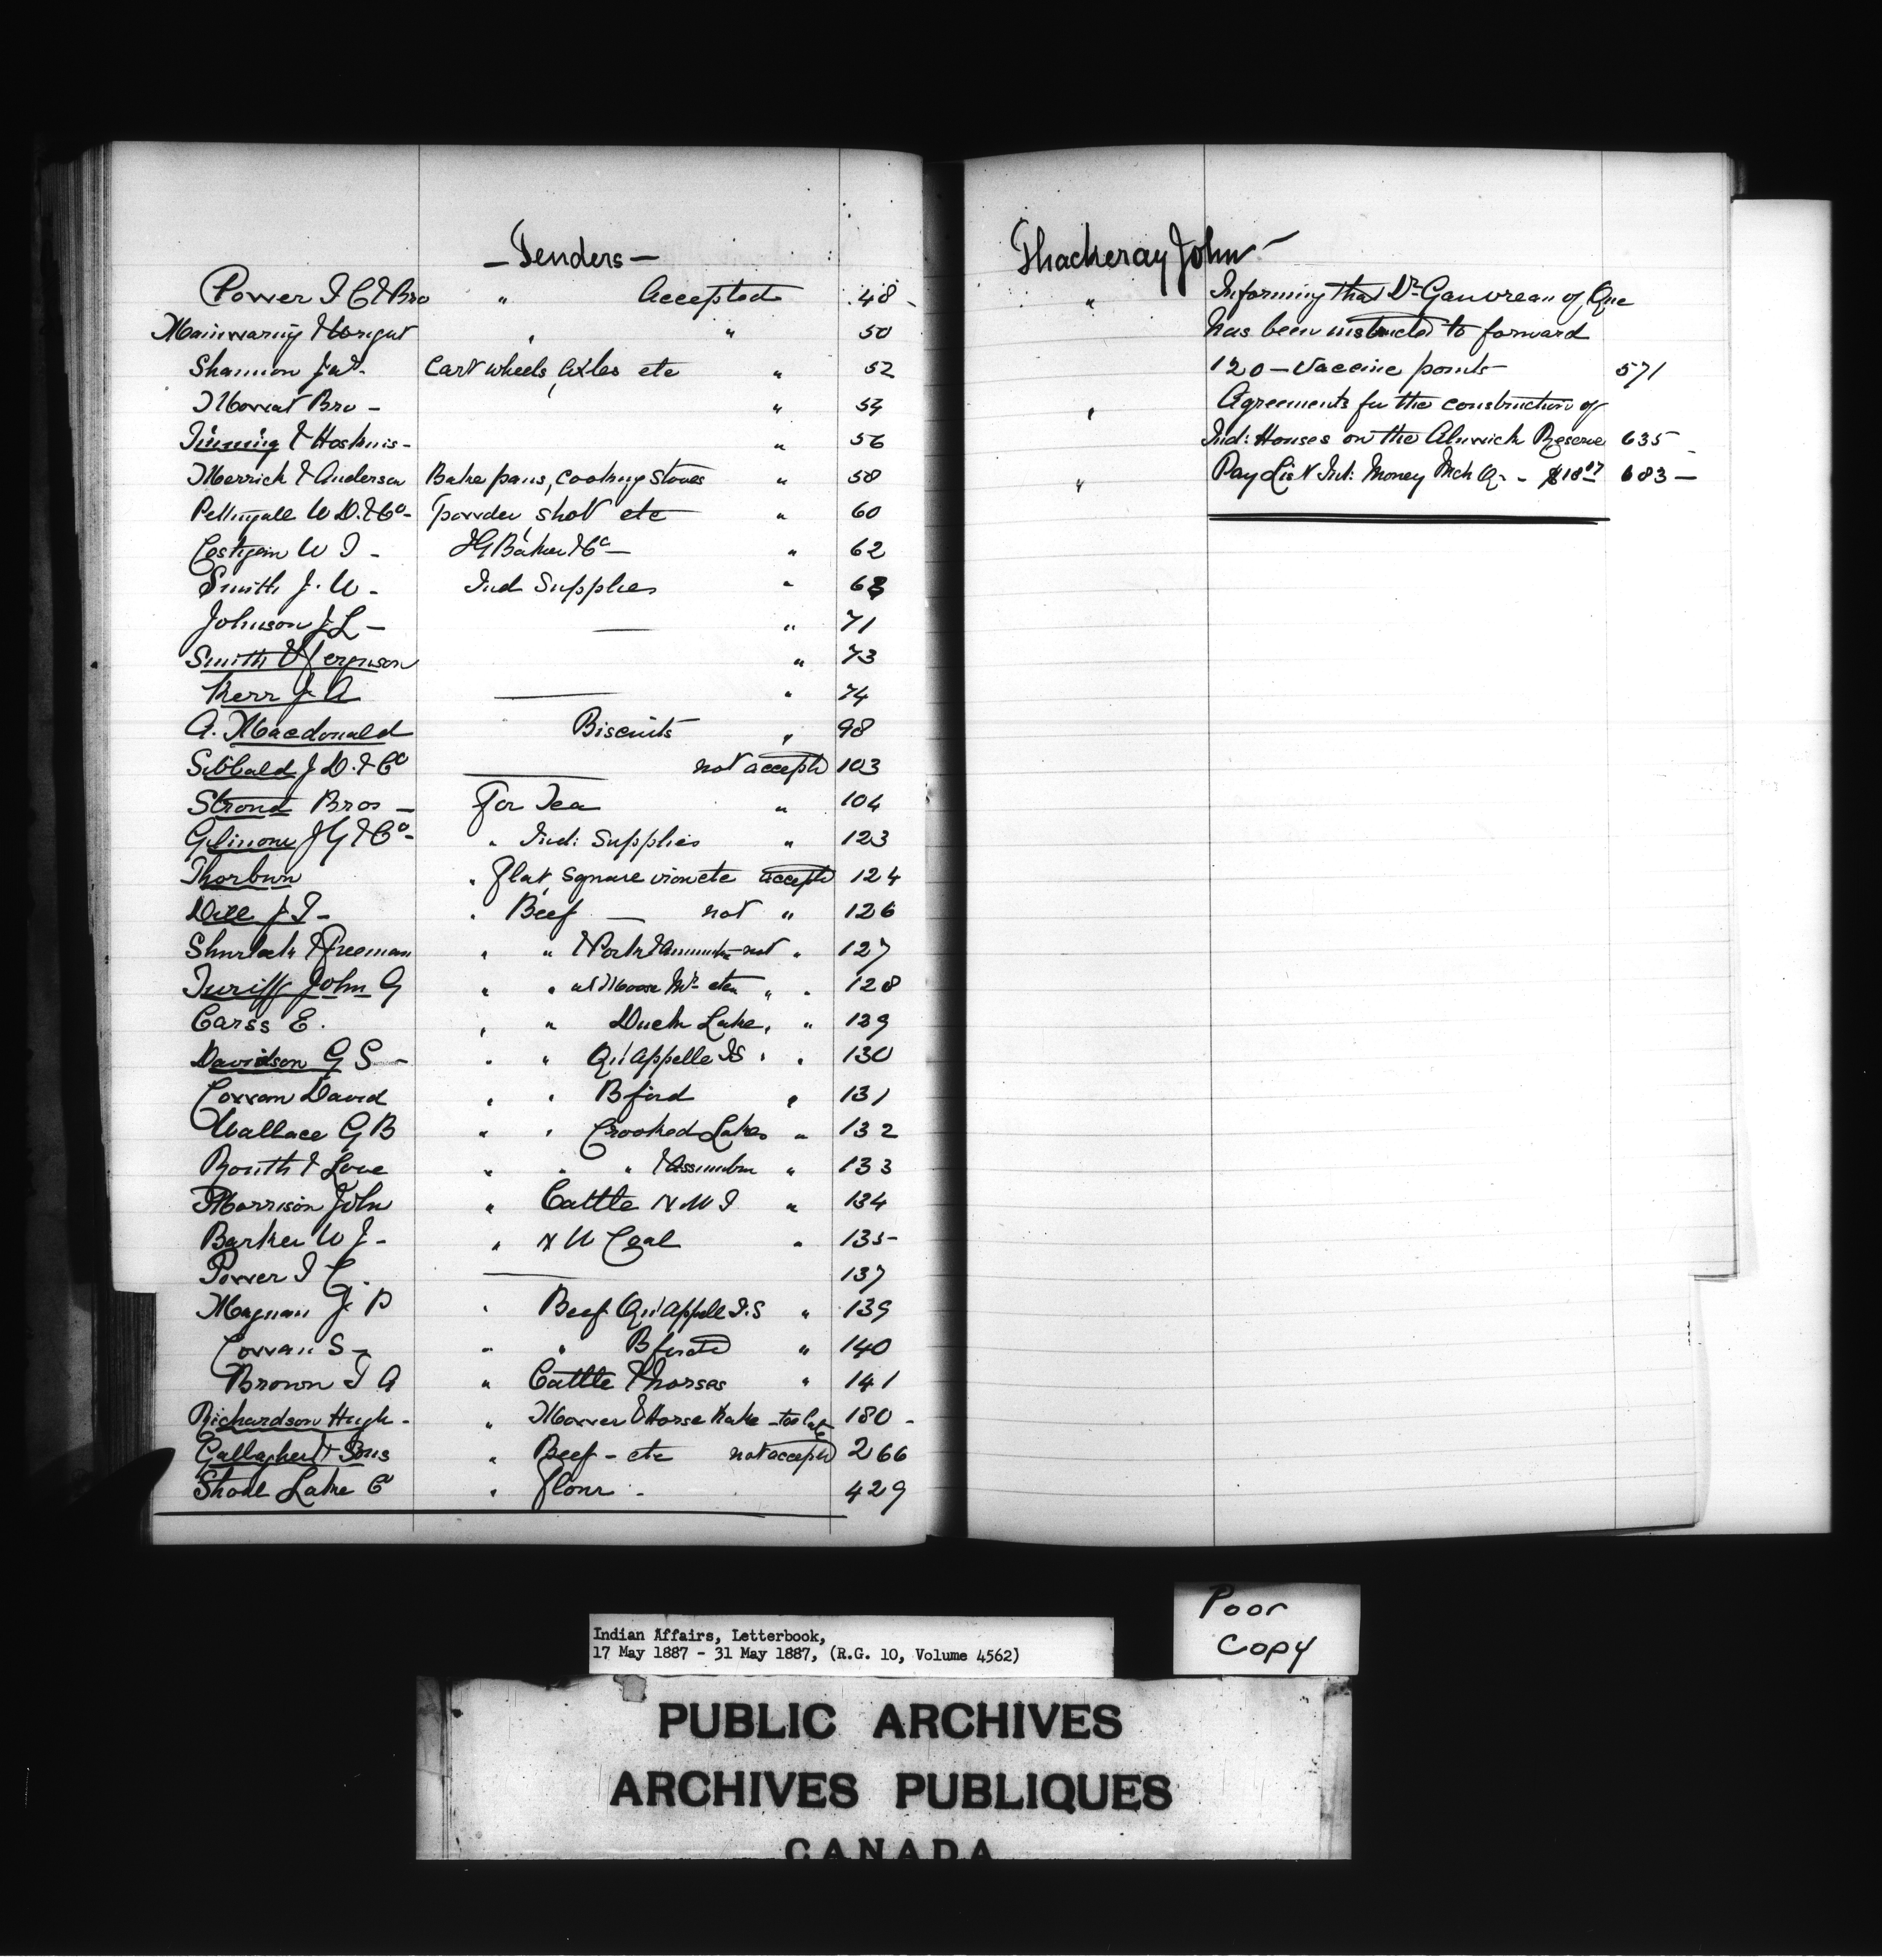 — Tenders —
Power I C & Bro " Accepted 48 -
Mainwaring & " " 50
Shannon Cart wheels, Axles etc " 52
Mowat Bro - " 54
Tinning & Hoskins - " 56
Merrick & Anderson Bake pans, cooking Stoves " 58
W D. & Co - powder, shot etc " 60
Costigan W I - I G Baker & Co — " 62
Smith J. W - Ind Supplies " 63
Johnson J L — — " 71
Smith & Ferguson " 73
Kerr J A — " 74
A. Macdonald Biscuits " 98
Sibbald J D. & Co — not acceptd 103
Strond Bros — For Tea " 104
J G & Co - " Ind: Supplies " 123
Thorburn " Flat, Square iron etc acceptd 124
Dill J I - " Beef — not " 126
& Freeman " " & Pork & not " 127
Turiff John G " " at Moose Mt. etc " " 128
Carss E. " " Duck Lake, " 129
Davidson G S - " " Qu'Appelle I S " " 130
Cowan David " " Bford " 131
Wallace G B " " Crooked Lakes " 132
Routh & Love " " " & " 133
Morrison John " Cattle N W T " 134
Barker W J - " N W Coal " 135
Power I C. — 137
Magnan J. P " Beef Qu'Appelle I.S " 139
Cowan S - " " Bford " 140
Brown I A " Cattle & horses " 141
Richardson Hugh - " Mower & Horse Rake - too late 180 -
Gallagher & Sons " Beef - etc not acceptd 266
Shoal Lake Co " flour - 429
Thackeray John —
" Informing that Dr. Gauvreau of Que
has been instructed to forward
120 — Vaccine points — 571
" Agreements for the construction of
Ind: Houses on the Alnwick Reserve 635 -
" Pay List Int: Money Mch Qr - $18 07 683 —
Poor
Copy
Indian Affairs, Letterbook,
17 May 1887 - 31 May 1887, (R.G. 10, Volume 4562)
PUBLIC ARCHIVES
ARCHIVES PUBLIQUES
CANADA